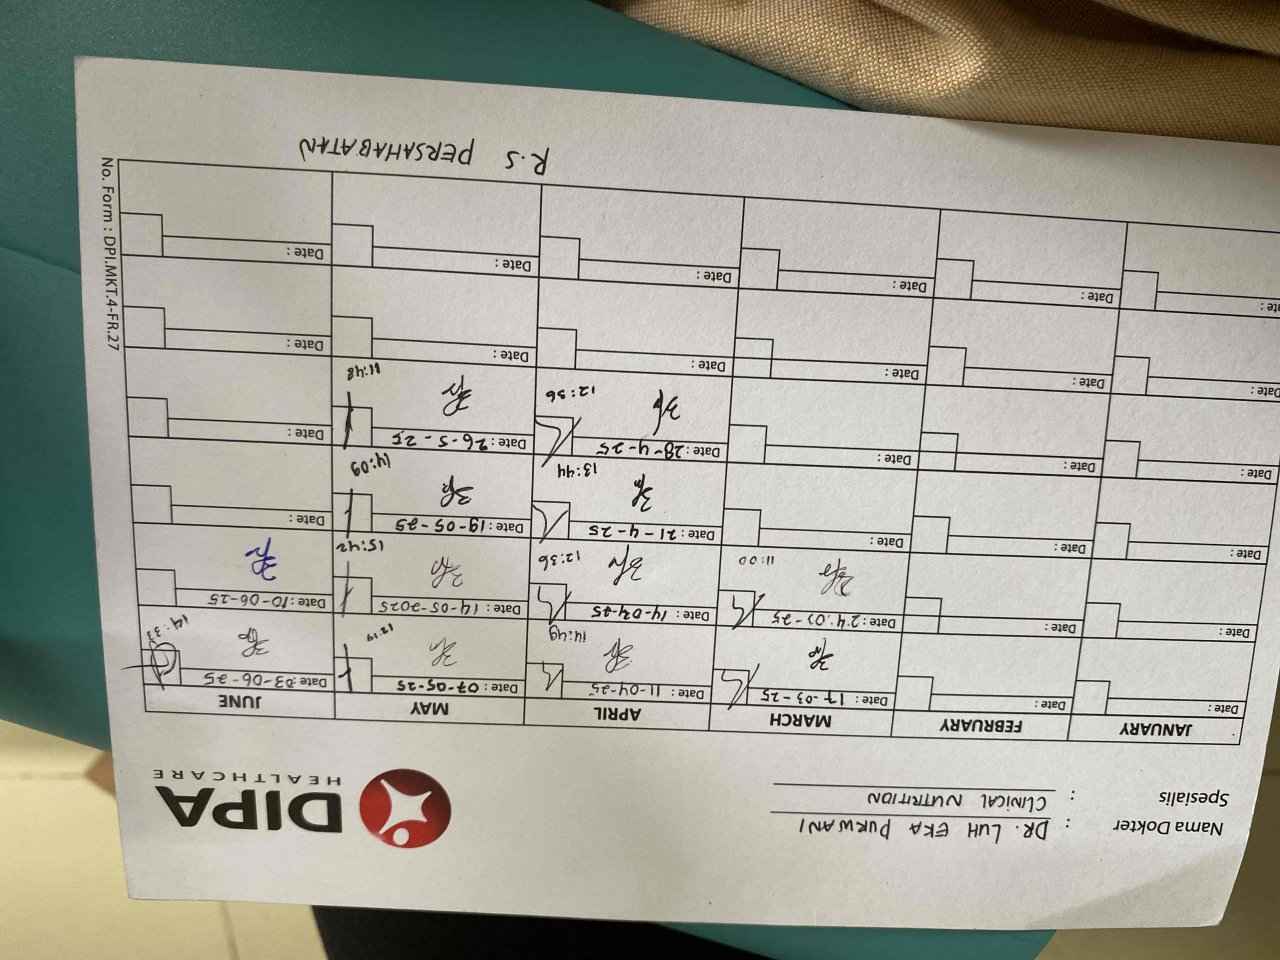 Nama Dokter : DR. LUH EKA PURWANI
Spesialis : CLINICAL NUTRITION
DIPA
HEALTHCARE
JANUARY FEBRUARY MARCH APRIL MAY JUNE
Date: Date: Date: 17-03-25 Date: 11-04-25 Date: 07-05-25 Date: 03-06-25
14:49 12:19 14:33
Date: Date: Date: 24.03-25 Date: 14-04-25 Date: 14-05-2025 Date: 10-06-25
11:00 12:36 15:42
Date: Date: Date: Date: 21-4-25 Date: 19-05-25 Date:
13:44 14:09
Date: Date: Date: Date: 28-4-25 Date: 26-5-25 Date:
12:36 11:48
Date: Date: Date: Date: Date: Date:
Date: Date: Date: Date: Date: Date:
R.S PERSAHABATAN
No. Form : DPI.MKT.4-FR.27